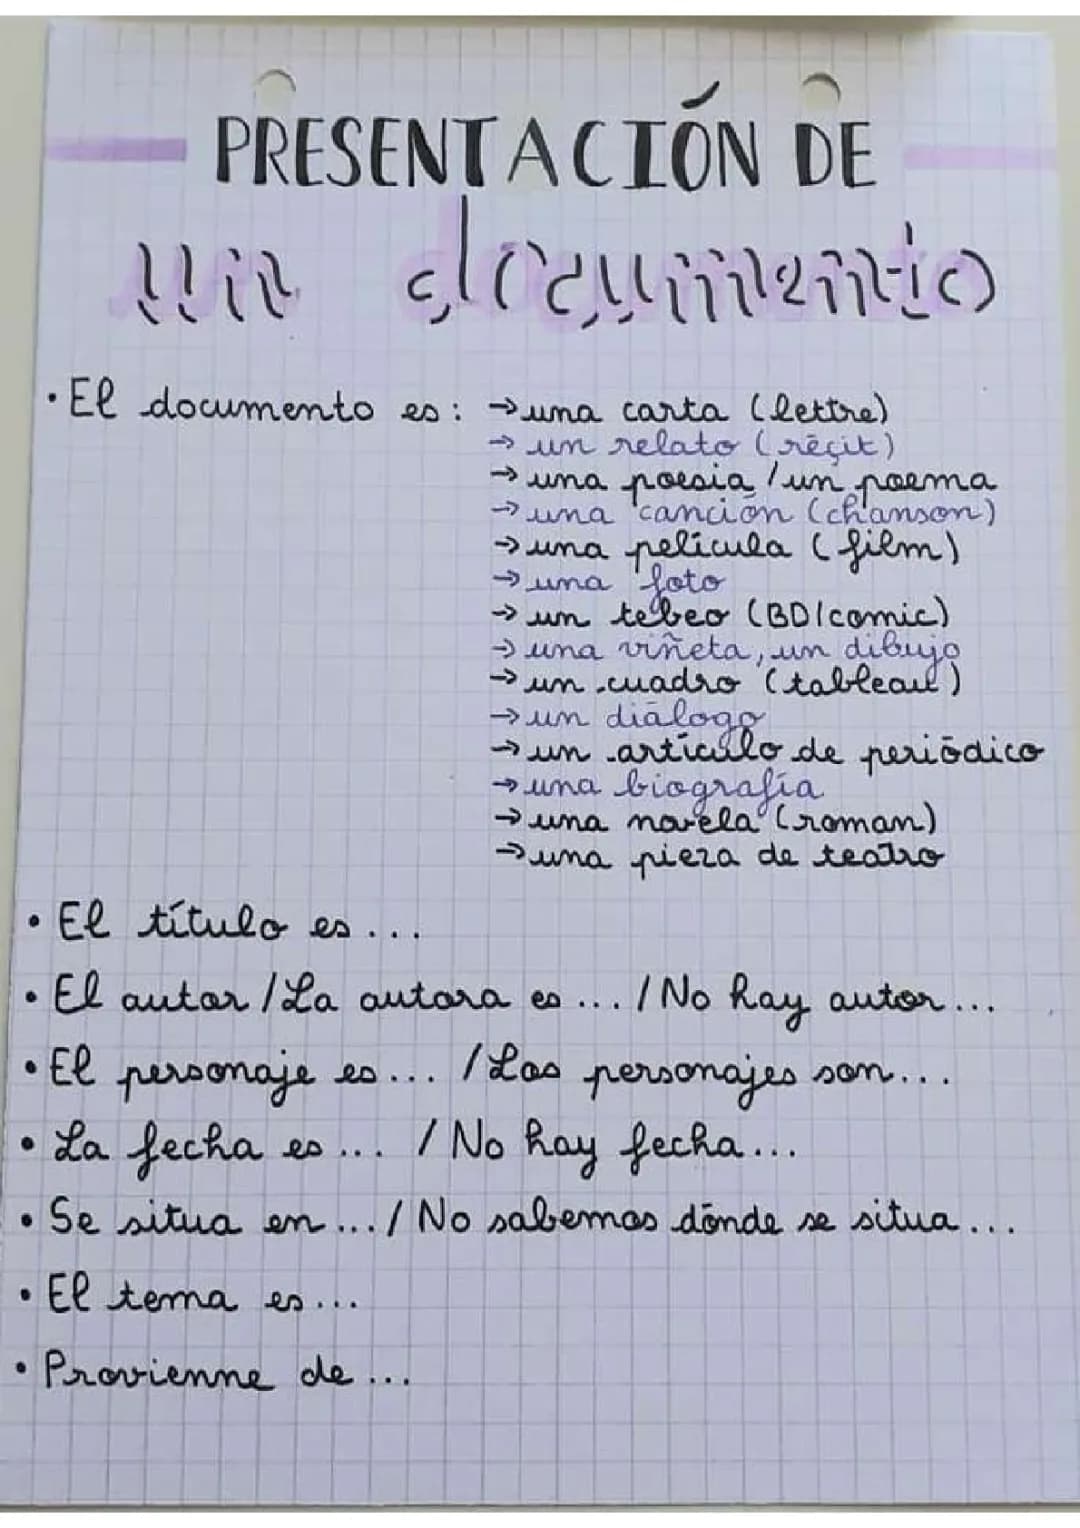 PRESENTACIÓN DE
un documento
• El documento es: → una carta (lettre)
→ un relato (récit)
→ una poesia / un poema
→ una canción (chanson)
→ una película (film)
→ una foto
→ un tebeo (BD/comic)
→ una viñeta, un dibujo
→ un cuadro (tableau)
→ un diálogo
→ un artículo de periódico
→ una biografía
→ una novela (roman)
→ una pieza de teatro
• El título es ...
• El autor / La autora es ... / No hay autor ...
• El personaje es ... / Los personajes son ...
• La fecha es ... / No hay fecha ...
• Se situa en ... / No sabemos dónde se situa ...
• El tema es ...
• Provienne de ...